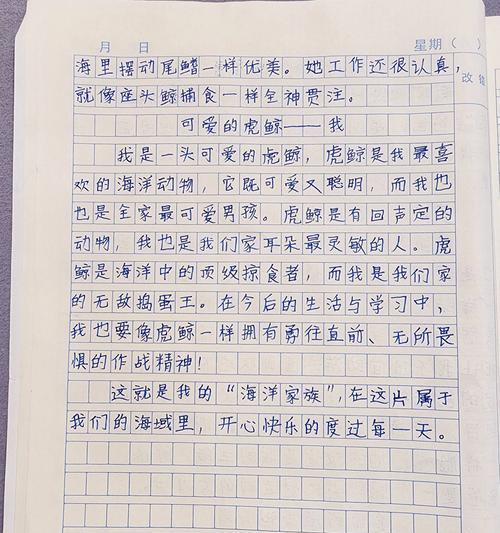 月 日 星期( )
海里摆动尾鳍一样优美。她工作还很认真,
就像座头鲸捕食一样全神贯注。
可爱的虎鲸——我
我是一头可爱的虎鲸,虎鲸是我最喜
欢的海洋动物,它既可爱又聪明,而我也
也是全家最可爱男孩。虎鲸是有回声定的
动物,我也是我们家耳朵最灵敏的人。虎
鲸是海洋中的顶级掠食者,而我是我们家
的无敌捣蛋王。在今后的生活与学习中,
我也要像虎鲸一样拥有勇往直前、无所畏
惧的作战精神!
这就是我的“海洋家族”,在这片属于
我们的海域里,开心快乐的度过每一天。
改错